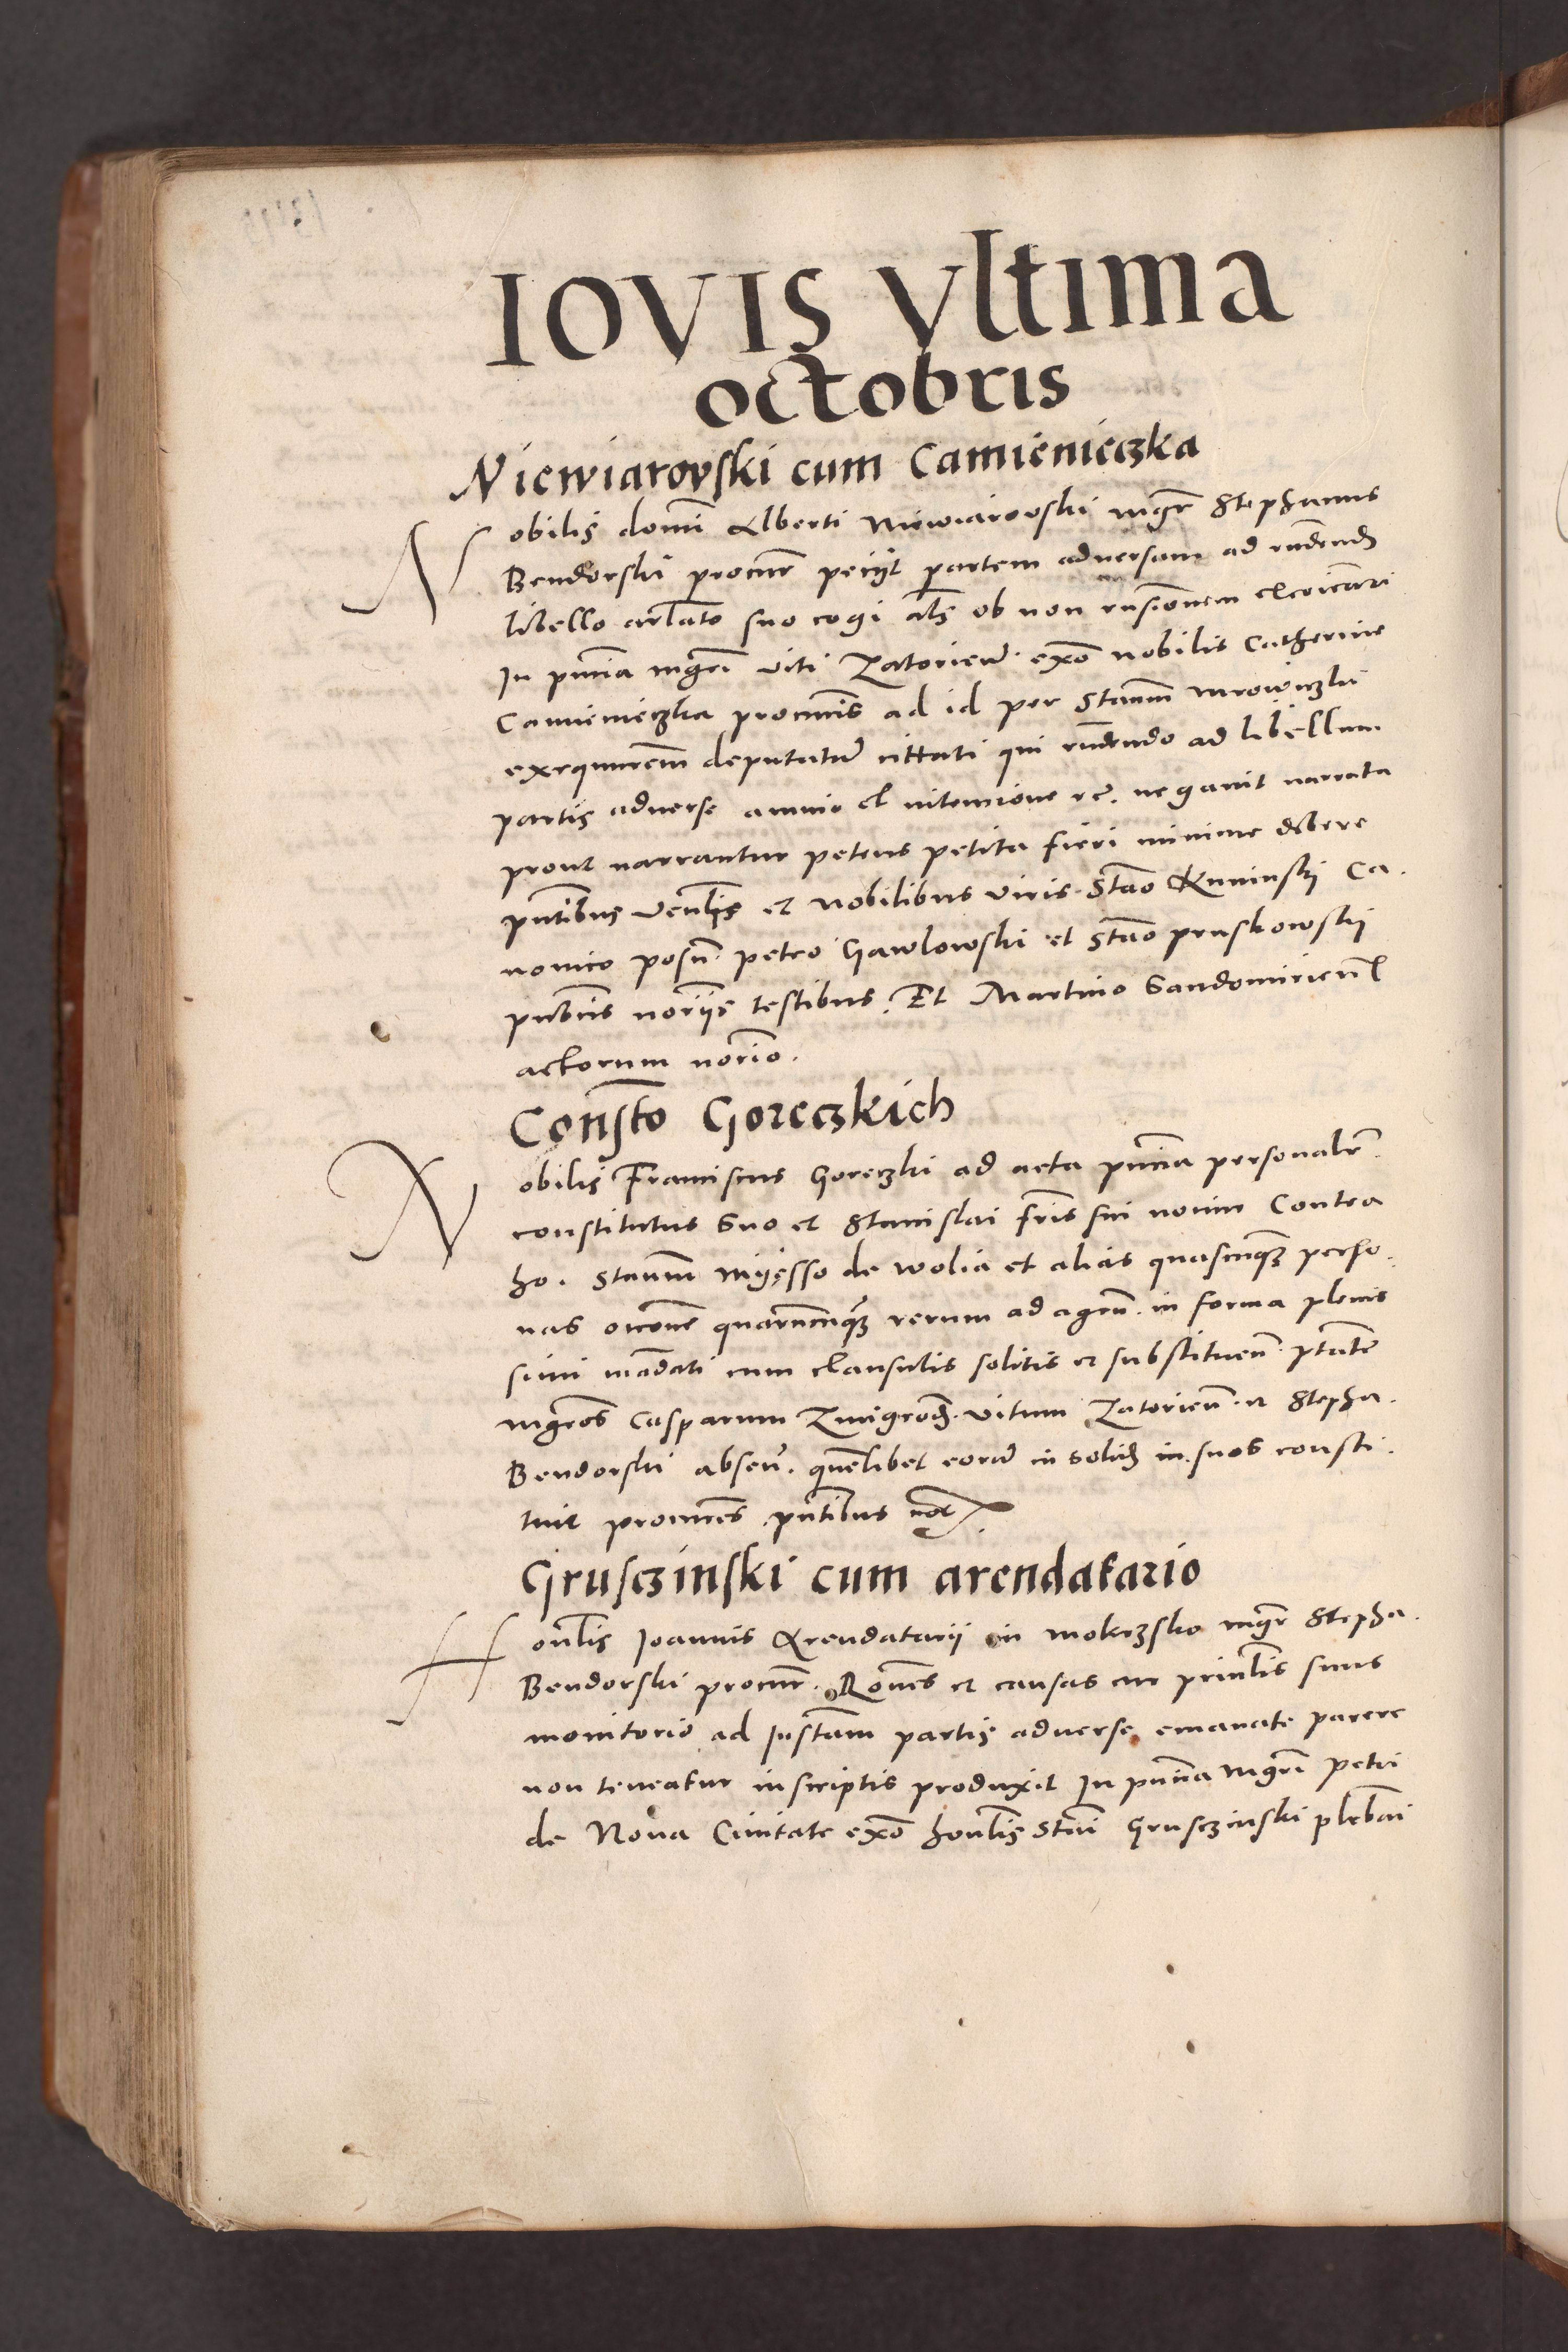 IOVIS Vltima
octobris
Niewiarovski cum Camienieczka
Nobilis domi Alberti Niewiarovski mgr Stephanus
Bendorski procur peciit partem adversam ad rndend
libello arlato suo cogi als ob non rnsionem excoicari
In pncia mgri Viti Zatorien exo nobilis Catherine
Camienieczka procuris ad id per Staum Mrowiczki
exequurem deputatum cittati qui rndendo ad libellum
partis adverse animo et intencione rc. negavit narrata
prout narrantur petens petita fieri minime debere
pntibus venlis et Nobilibus viris Stao Kuninski Ca
nonico posn petro Gawlowski et Stao pruskowskij
publicis noriis testibus. Et Martino Sandomirien
actorum norio.
Constto Goreczkich
Nobilis Franciscus Goreczki ad acta pncia personalr
constitutus Suo et Stanislai fris sui nomine Contra
ho. Staum myesso de wolia et alias quascunqz perso
nas occone quarumcunqz rerum ad agen. in forma plenis
simi madati cum clausulis solitis et substituen ptate
mgros Casparum Zmigrod. Vitum Zatorien et Stepha.
Bendorski absen. quelibet eorum in Solid in suos consti
tuit procures pntibus
Grusczinski cum arendatario
Honlis Joannis Arendatarii in Mokrzsko mgr Stepha.
Bendorski procur. Rones et causas cur prinlis suus
monitorio ad Instam partis adverse emanate parere
non teneatur in scriptis produxit In pncia mgri petri
de Nova Civitate exo honlis Stai Grusczinski plebani